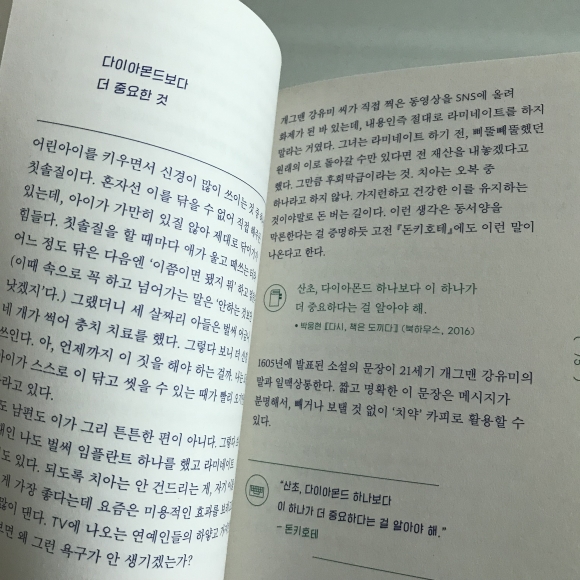 다이아몬드보다
더 중요한 것
어린아이를 키우면서 신경이 많이 쓰이는 것
칫솔질이다. 혼자선 이를 닦을 수 없어 직접
있는데, 아이가 가만히 있질 않아 제대로
힘들다. 칫솔질을 할 때마다 애가 울고 떼쓰는
어느 정도 닦은 다음엔 '이쯤이면 됐지 뭐' 하고
(이때 속으로 꼭 하고 넘어가는 말은 '안하는 것보
낫겠지'다.) 그랬더니 세 살짜리 아들은 벌써
네 개가 썩어 충치 치료를 했다. 그렇다 보니 더
쓰인다. 아, 언제까지 이 짓을 해야 하는 걸까.
아이가 스스로 이 닦고 씻을 수 있는 때가 빨리
라고 있다.
도 남편도 이가 그리 튼튼한 편이 아니다. 그렇다
대인 나도 벌써 임플란트 하나를 했고 라미네이트
도 있다. 되도록 치아는 안 건드리는 게,
게 가장 좋다는데 요즘은 미용적인 효과를
많이 댄다. TV에 나오는 연예인들의 하얗고
보면 왜 그런 욕구가 안 생기겠는가?
개그맨 강유미 씨가 직접 찍은 동영상을 SNS에 올려
화제가 된 바 있는데, 내용인즉 절대로 라미네이트를 하지
말라는 거였다. 그녀는 라미네이트 하기 전, 삐뚤빼뚤했던
원래의 이로 돌아갈 수만 있다면 전 재산을 내놓겠다고
했다. 그만큼 후회막급이라는 것. 치아는 오복 중
하나라고 하지 않나. 가지런하고 건강한 이를 유지하는
것이야말로 돈 버는 길이다. 이런 생각은 동서양을
막론한다는 걸 증명하듯 고전 『돈키호테』에도 이런 말이
나온다고 한다.
산초, 다이아몬드 하나보다 이 하나가
더 중요하다는 걸 알아야 해.
• 박웅현 《다시, 책은 도끼다》 (북하우스, 2016)
1605년에 발표된 소설의 문장이 21세기 개그맨 강유미의
말과 일맥상통한다. 짧고 명확한 이 문장은 메시지가
분명해서, 빼거나 보탤 것 없이 '치약' 카피로 활용할 수
있다.
"산초, 다이아몬드 하나보다
이 하나가 더 중요하다는 걸 알아야 해."
– 돈키호테